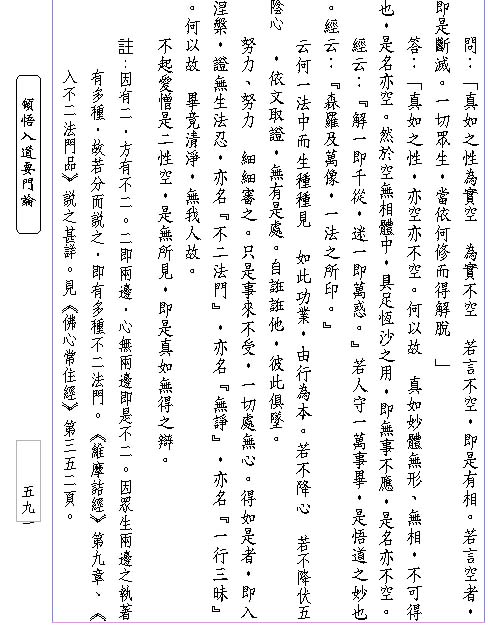 問：「真如之性為實空　為實不空　若言不空，即是有相。若言空者，
即是斷滅。一切眾生，當依何修而得解脫　」
答：「真如之性，亦空亦不空。何以故　真如妙體無形、無相，不可得
也，是名亦空。然於空無相體中，具足恆沙之用，即無事不應，是名亦不空。
經云：『解一即千從，迷一即萬惑。』若人守一萬事畢，是悟道之妙也
。經云：『森羅及萬像，一法之所印。』
云何一法中而生種種見　如此功業，由行為本。若不降心　若不降伏五
陰心　，依文取證，無有是處。自誑誑他，彼此俱墜。
努力、努力　細細審之。只是事來不受，一切處無心。得如是者，即入
涅槃，證無生法忍，亦名『不二法門』，亦名『無諍』，亦名『一行三昧』
。何以故　畢竟清淨，無我人故。
不起愛憎是二性空，是無所見，即是真如無得之辯。
註：因有二，方有不二。二即兩邊，心無兩邊即是不二。因眾生兩邊之執著
有多種，故若分而說之，即有多種不二法門。《維摩詰經》第九章、《
入不二法門品》說之甚詳。見《佛心常住經》第三五二頁。
頓悟入道要門論
五九